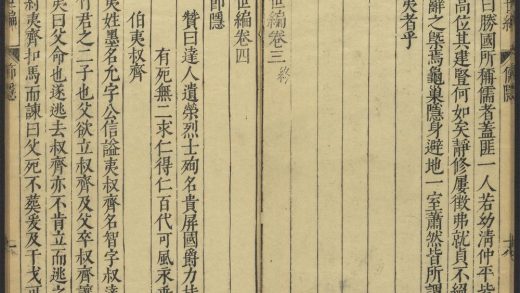 曰勝國所稱儒者蓋匪一人若幼清仲平皆
高位其建豎何如矣靜修屢徵弗就貞不絕
辭之槩焉龜巢隱身避地一室蕭然皆所謂
夷者乎
世編卷三 終
世編卷四
節隱
贊曰達人遺榮烈士殉名貴屏國爵力
有死無二求仁得仁百代可風永
伯夷叔齊
夷姓墨名允字公信謚夷叔齊名智字叔達
竹君之二子也父欲立叔齊及父卒叔齊讓
夷曰父命也遂逃去叔齊亦不肯立而逃之
夷齊扣馬而諫曰父死不葬爰及干戈可
世編 節隱 一